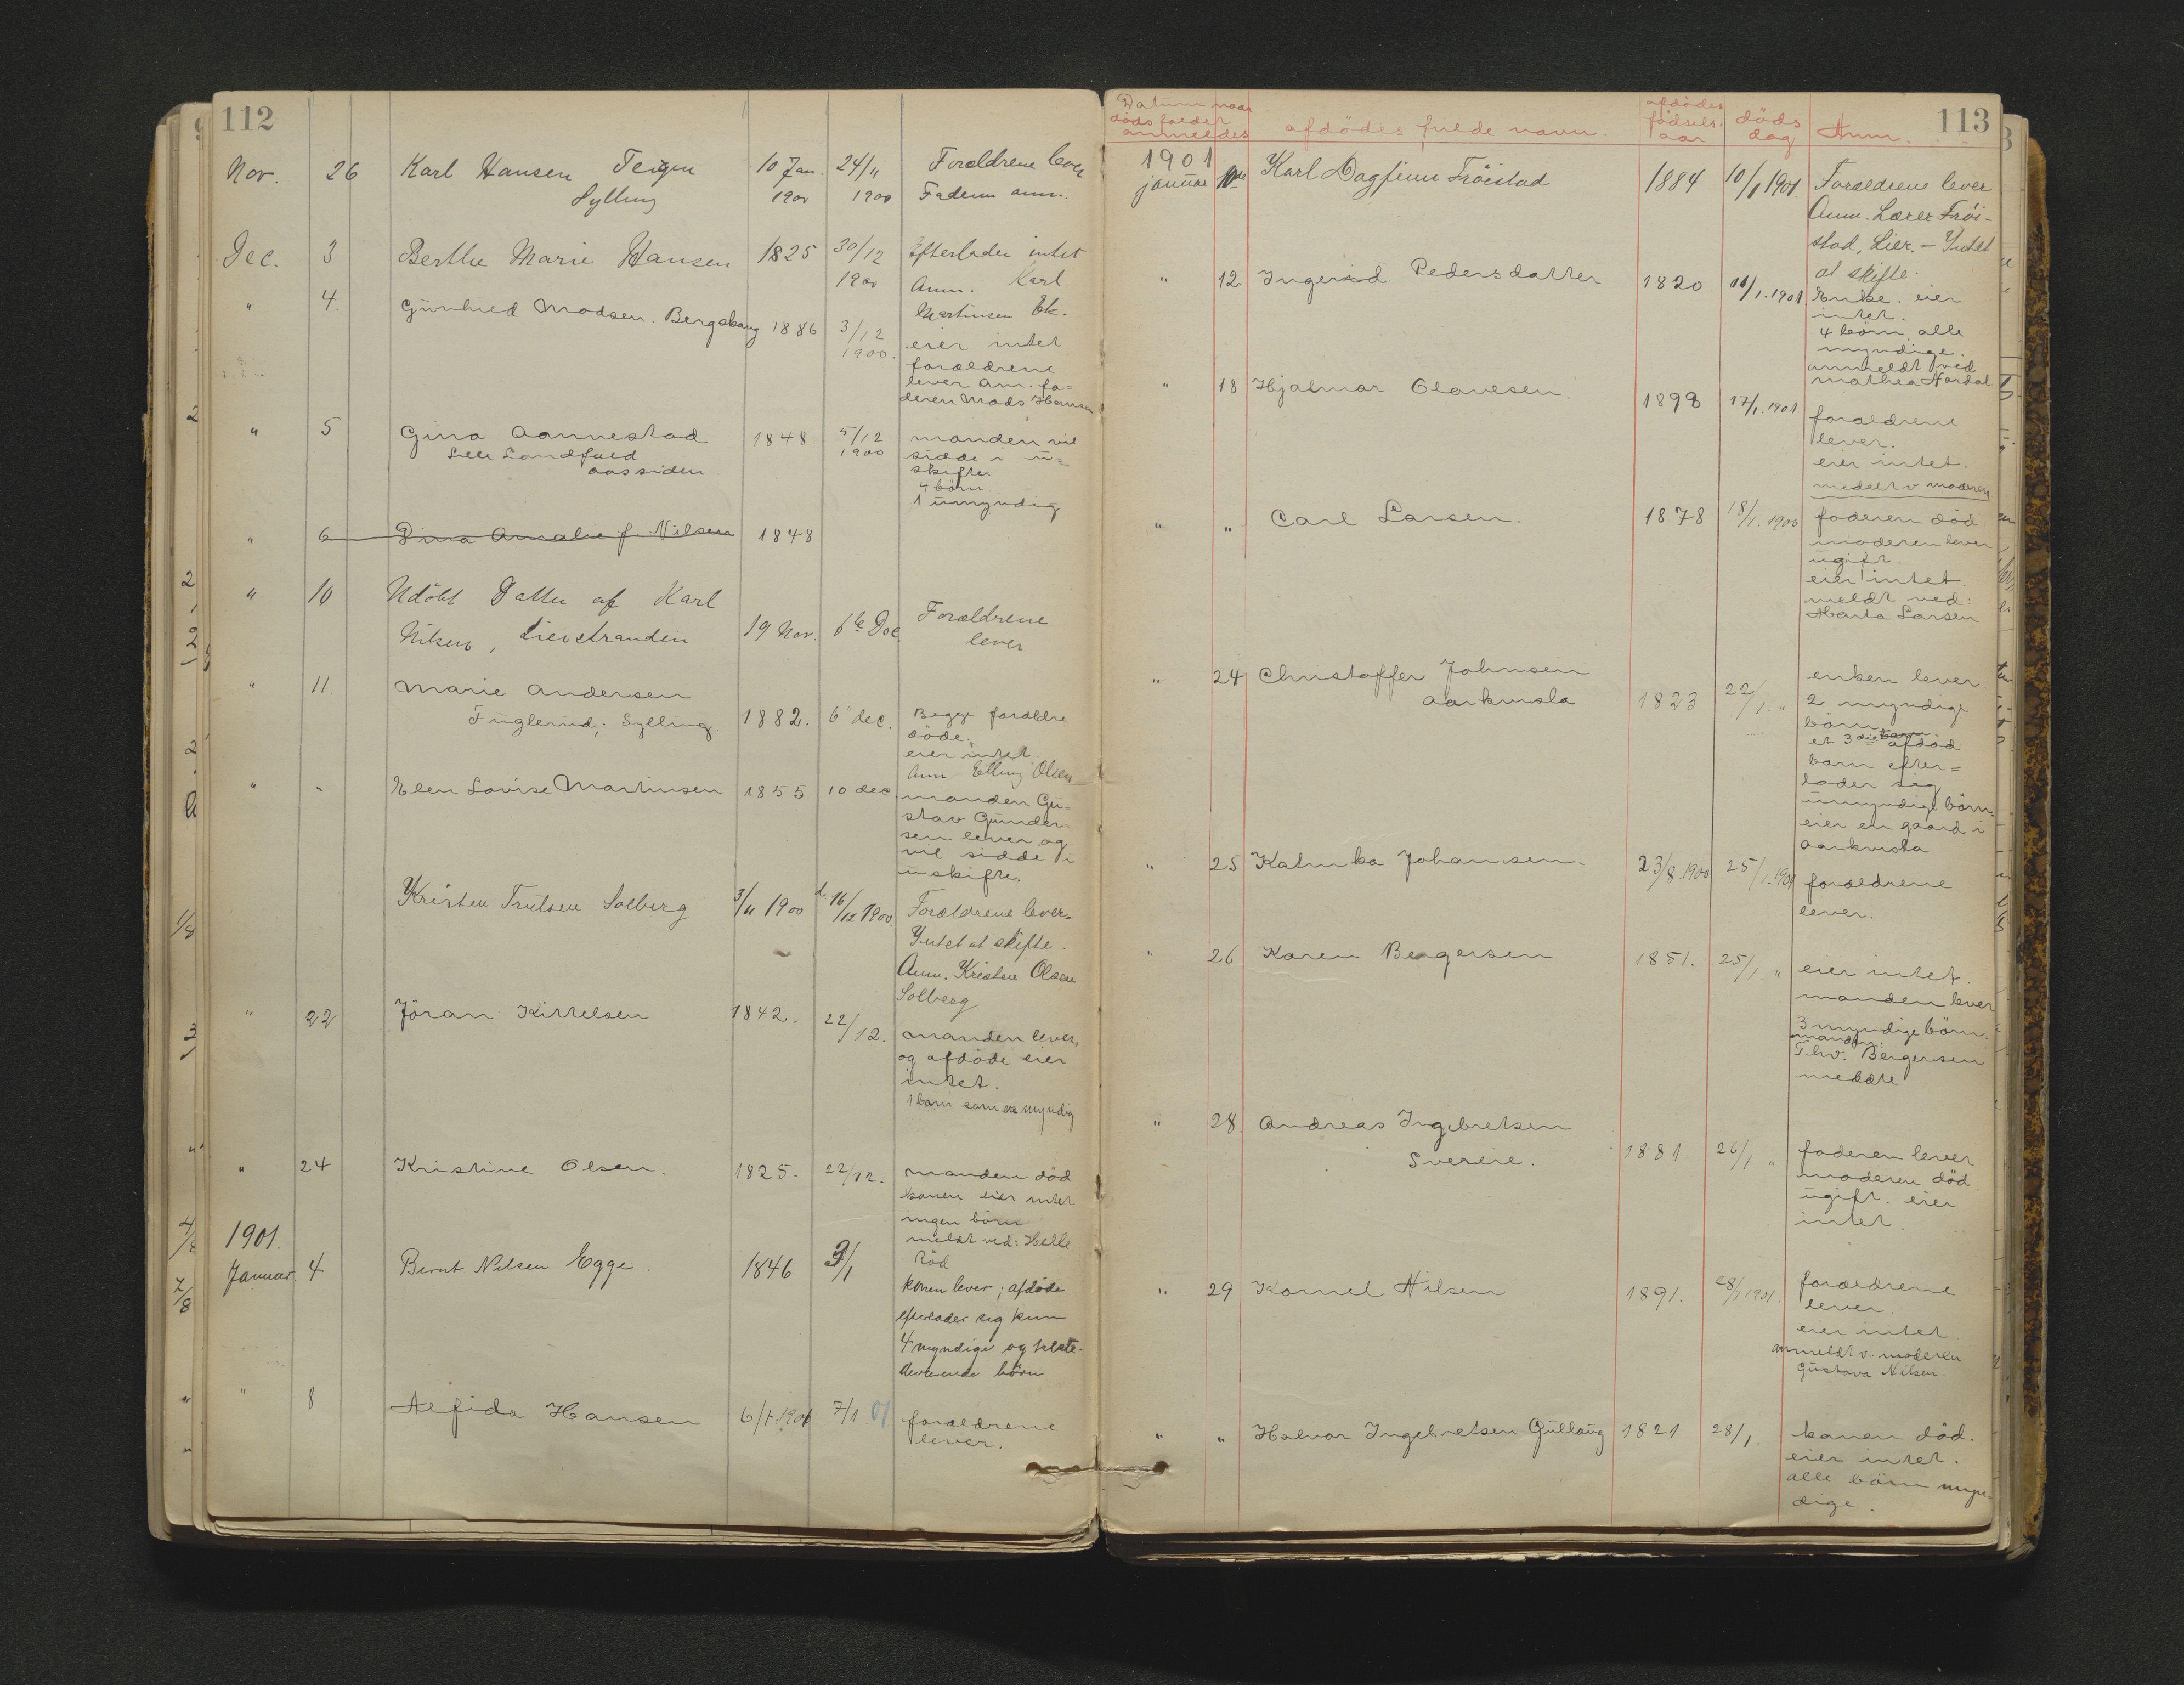 112
Nov. 26 Karl Hansen Teigen 10 Jan. 24/11 Forældrene lever
Sylling 1900 1900 Faderen anm.
Dec. 3 Berthe Marie Hansen 1825 30/12 Efterlader intet
1900 Anm. Karl
Martinsen Ek.
" 4. Gunhild Madsen. Bergskaug 1886 3/12 eier intet
1900. forældrene
lever anm. fa=
deren Mads Hansen
" 5 Gina Aannestad 1848. 5/12 manden vil
Lille Landfald 1900 sidde i u=
aassiden. skifte.
4 børn
1 umyndig
" 6 Dina Amalie f. Nilsen 1848
" 10 Udöbt Datter af Karl
Nilsen, Lierstranden 19 Nov. 6te Dec. Forældrene
lever
" 11. Marie Andersen
Fuglerud, Sylling 1882. 6" dec. Begge forældre
döde.
eier intet.
Anm Elling Olsen
" " Elen Lovise Martinsen 1855 10 dec. manden Gu=
stav Gunder=
sen lever og
vil sidde i
uskifte.
Kristen Trulsen Solberg 3/11 1900 d. 16/12 1900. Forældrene lever.
Intet at skifte.
Anm. Kristen Olsen
Solberg
" 22 Jöran Kittelsen 1842. 22/12. manden lever,
og afdöde eier
intet.
1 barn som er myndig
" 24 Kristine Olsen. 1825. 22/12. manden död
konen eier intet
ingen börn
meldt ved: Helle
Röd
1901.
Januar 4 Bernt Nilsen Egge. 1846 3/1 konen lever; afdöde
efterlader sig kun
4 myndige og tilste-
deværende börn
" 8 Alfida Hansen 6/1.1901 7/1.01 forældrene
lever.
113
Datum naar dödsfaldet anmeldes afdödes fulde navn. afdödes födsels- aar döds dag Anm.
1901
januar 10de Karl Dagfinn Fröistad 1884 10/1 1901 Forældrene lever
Anm. Lærer Fröi-
stad, Lier. - Intet
at skifte.
" 12. Ingerid Pedersdatter 1820 11/1.1901 Enke. eier
intet.
4 börn, alle
myndige.
anmeldt ved
Mathea Nordal
" 18 Hjalmar Olavesen. 1898 17/1.1901. forældrene
lever.
eier intet.
medelt v moderen
" " Carl Larsen. 1878 18/1.1900 faderen död
moderen lever
ugift.
eier intet.
meldt ved:
Marta Larsen
" 24 Christoffer Johnsen
Aarkvisla 1823 22/1. " enken lever
2 myndige
börn.
et 3die afdöd
barn efter=
lader sig
umyndige börn.
eier en gaard i
Aarkvisla
" 25 Katinka Johansen. 23/8.1900 25/1.1901 forældrene
lever.
" 26 Karen Bergersen 1851. 25/1 " eier intet.
manden lever
3 myndige börn.
manden.
Thv. Bergersen
meldte
" 28. Andreas Ingebretsen
Svereie. 1881 26/1 " faderen lever
moderen död
ugift. eier
intet.
" 29 Kornel Nilsen 1891. 28/1 1901. forældrene
lever.
eier intet.
anmeldt v. moderen
Gustava Nilsen.
" " Halvor Ingebretsen Gullaug 1821 28/1. konen död.
eier intet.
alle börn myn=
dige.